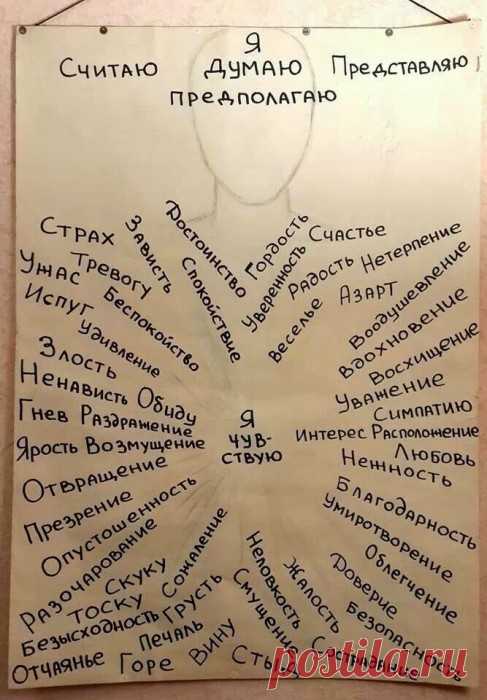 Я
Считаю Думаю Представляю
Предполагаю
Страх
Зависть
Достоинство
Гордость
Счастье
Ужас
Тревогу
Спокойствие
Уверенность
Радость
Нетерпение
Испуг
Беспокойство
Веселье
Азарт
Воодушевление
Удивление
Вдохновение
Злость
Восхищение
Ненависть Обиду
Уважение
Гнев Раздражение
Симпатию
Я
чув-
ствую
Ярость Возмущение
Интерес Расположение
Отвращение
Любовь
Нежность
Презрение
Благодарность
Опустошенность
Умиротворение
Разочарование
Облегчение
Скуку
Сожаление
Неловкость
Жалость
Доверие
Тоску
Грусть
Смущение
Безопасность
Безысходность
Печаль
Вину
Сострадание
Отчаянье
Горе
Стыд
postila.ru